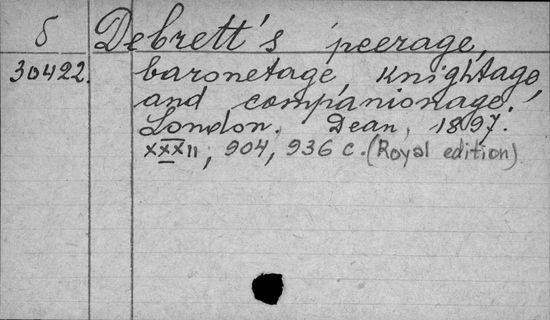 б Debrett's peerage,
30422. baronetage, knightage
and companionage.
London, Dean, 1897.
XXXII, 904, 936 c. (Royal edition)